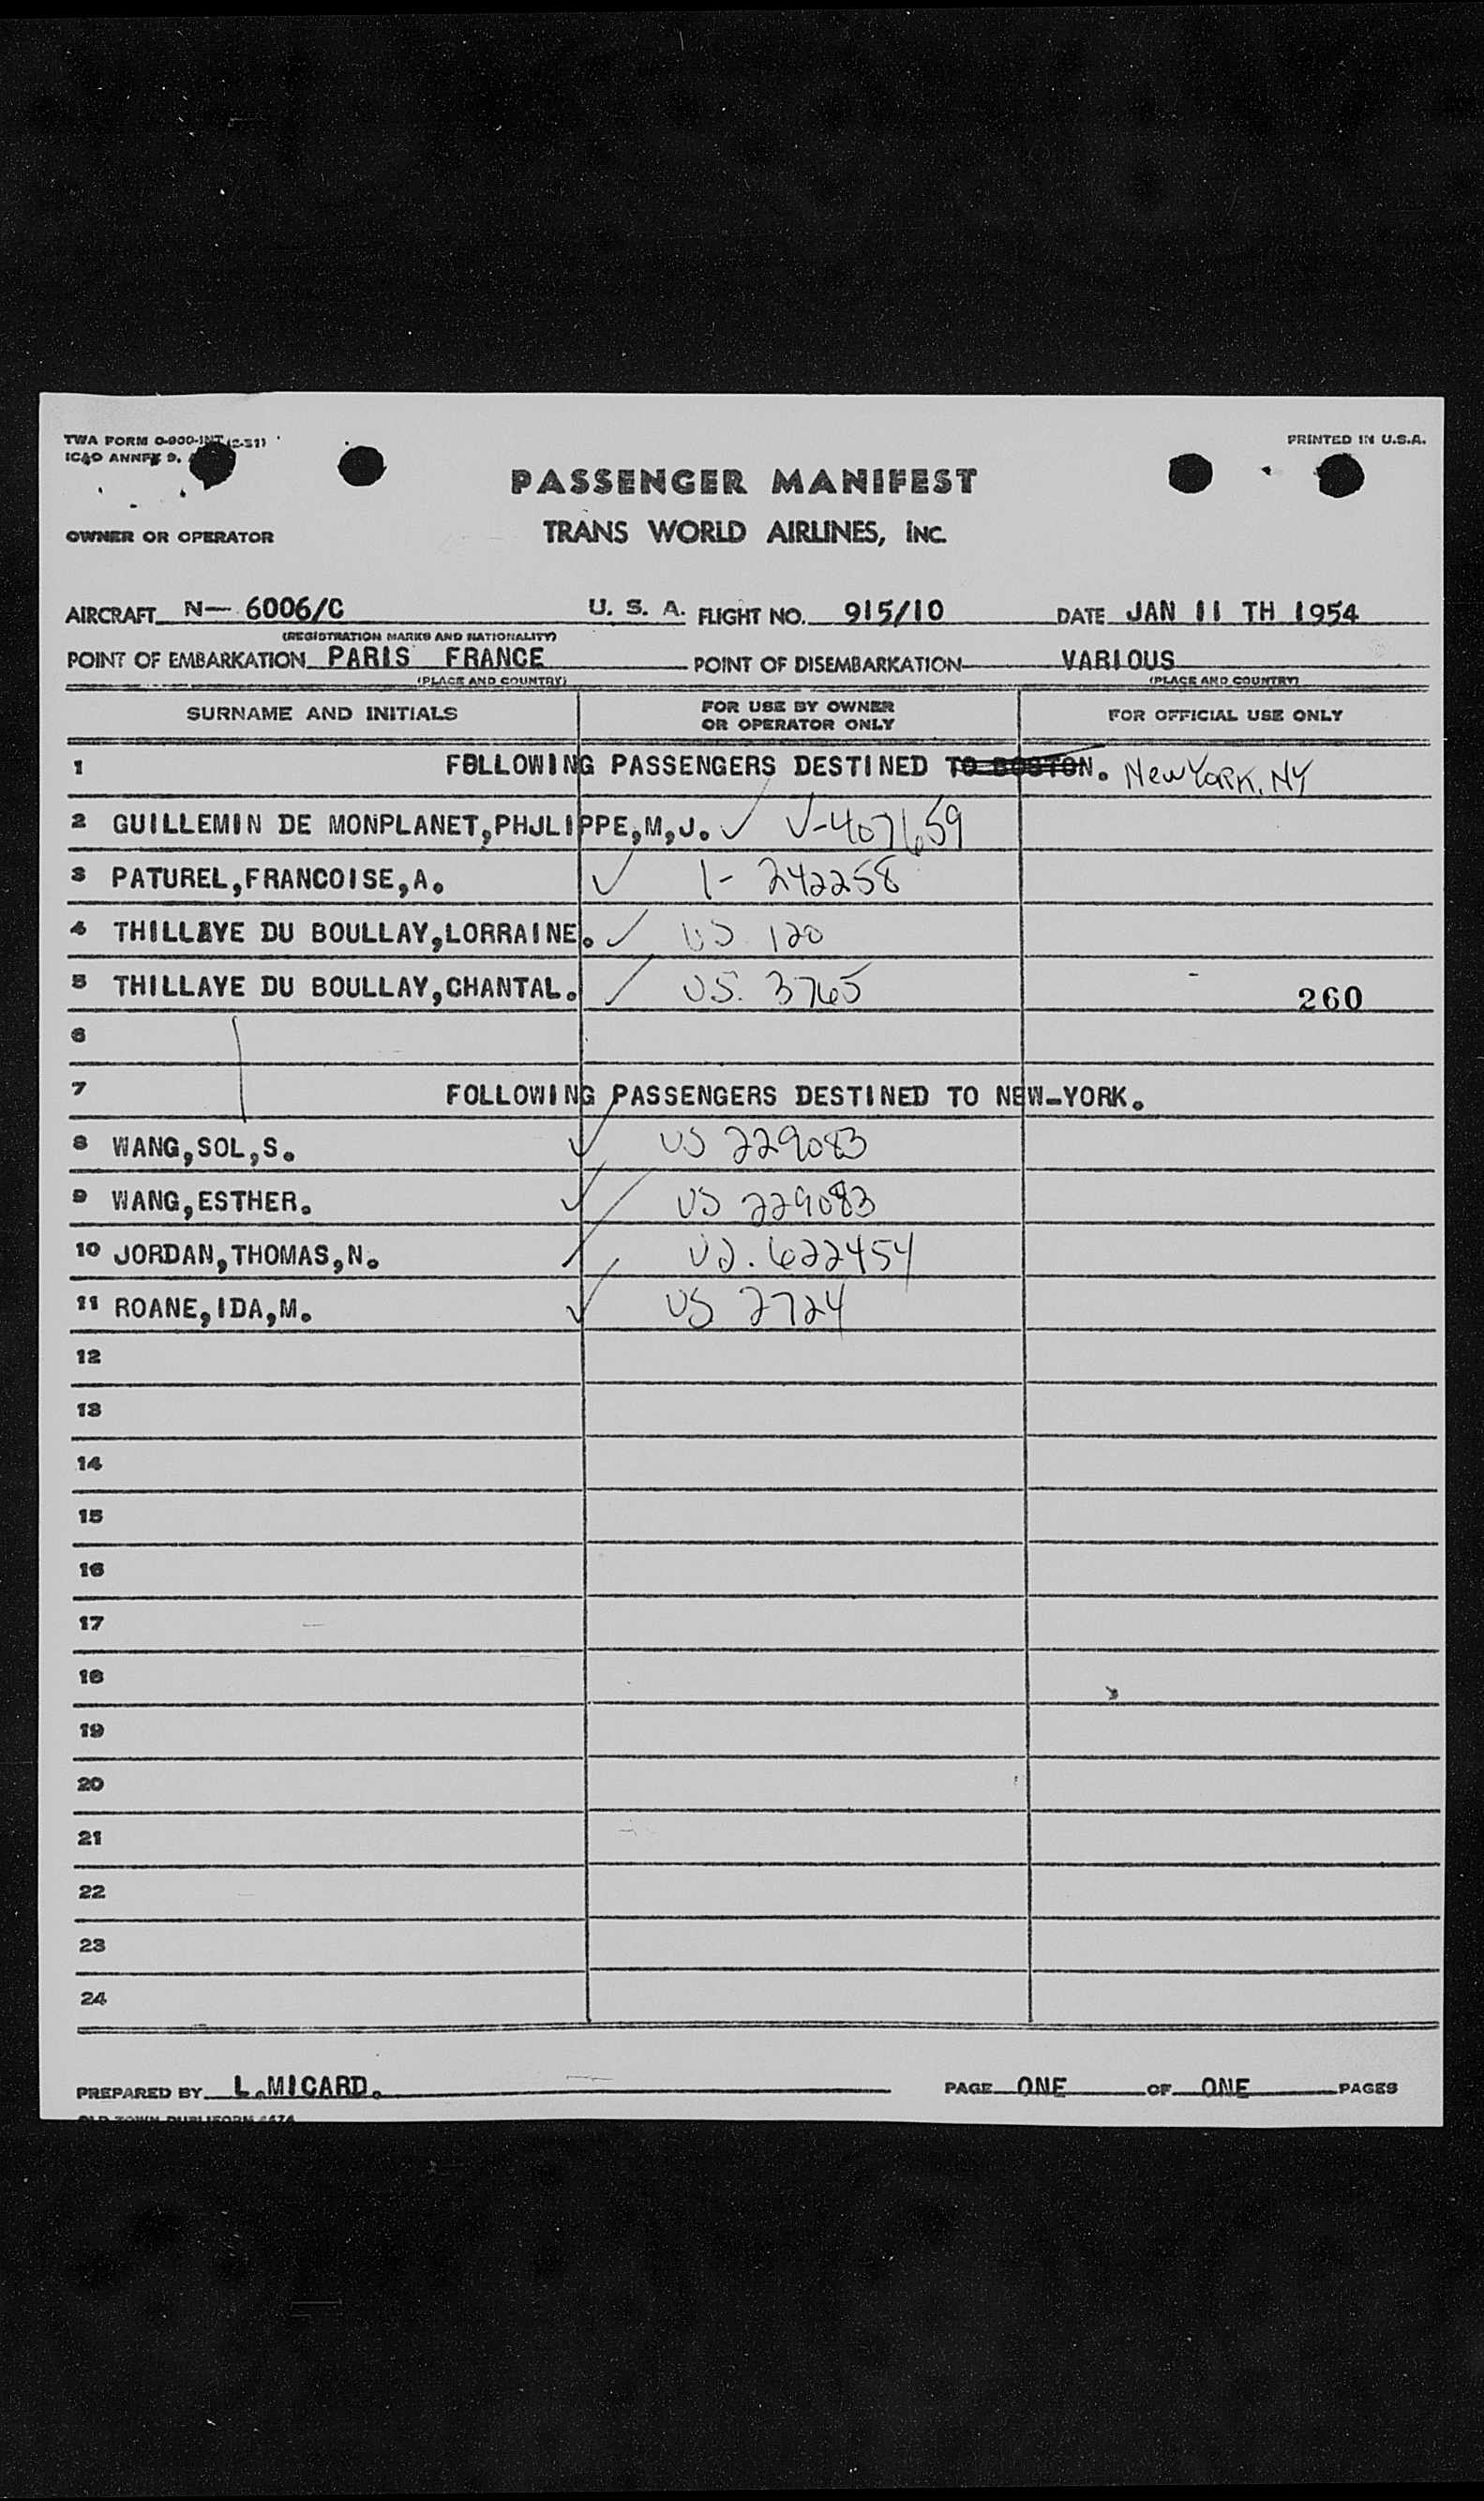 TWA FORM 0-900-INT (2-51)
PRINTED IN U.S.A.
ICAO ANNEX 9,
PASSENGER MANIFEST
OWNER OR OPERATOR
TRANS WORLD AIRLINES, INC.
AIRCRAFT N— 6006/C U. S. A. FLIGHT NO. 915/10 DATE JAN 11 TH 1954
(REGISTRATION MARKS AND NATIONALITY)
POINT OF EMBARKATION PARIS FRANCE POINT OF DISEMBARKATION VARIOUS
(PLACE AND COUNTRY) (PLACE AND COUNTRY)
SURNAME AND INITIALS FOR USE BY OWNER OR OPERATOR ONLY FOR OFFICIAL USE ONLY
1 FOLLOWING PASSENGERS DESTINED TO BOSTON. New York, NY
2 GUILLEMIN DE MONPLANET,PHJLIPPE,M,J. ✓ V-407659
3 PATUREL,FRANCOISE,A. ✓ 1- 242258
4 THILLAYE DU BOULLAY,LORRAINE. ✓ US 120
5 THILLAYE DU BOULLAY,CHANTAL. / US. 3765 260
6
7 FOLLOWING PASSENGERS DESTINED TO NEW-YORK.
8 WANG,SOL,S. ✓ US 229083
9 WANG,ESTHER. ✓ US 229083
10 JORDAN,THOMAS,N. / US. 622454
11 ROANE,IDA,M. ✓ US 2724
12
13
14
15
16
17
18
19
20
21
22
23
24
PREPARED BY L.MICARD. PAGE ONE OF ONE PAGES